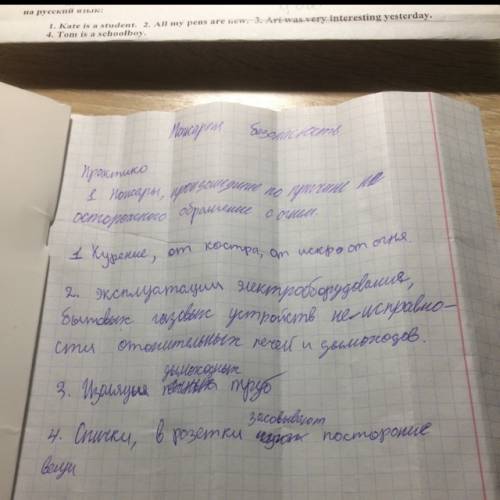 на русский язык:
1. Kate is a student. 2. All my pens are new. 3. Art was very interesting yesterday.
4. Tom is a schoolboy.
Пожарная безопасность
Практико
1 Пожары, произошедшие по причине не
осторожного обращение с огнем.
1 Курение, от костра, от искр от огня.
2. эксплуатации электрооборудования,
бытовых газовых устройств не-исправно-
сти отопительных печей и дымоходов.
дымоходных
3. Изоляция труб
засовывают
4. Спички, в розетки посторонние
вещи